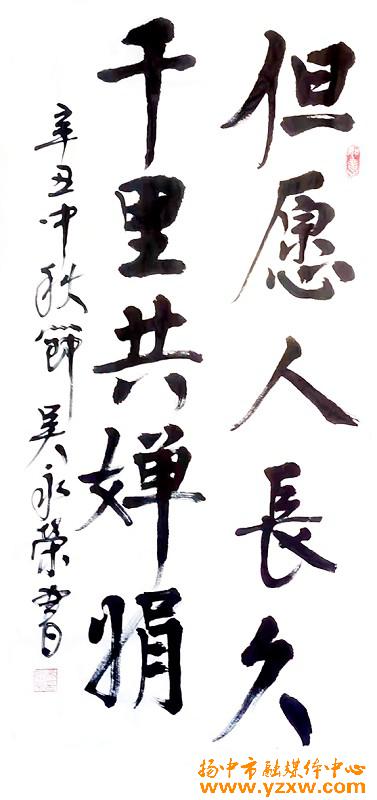 但愿人長久
千里共婵娟
辛丑中秋節 吴永榮書
扬中市融媒体中心
www.yzxw.com